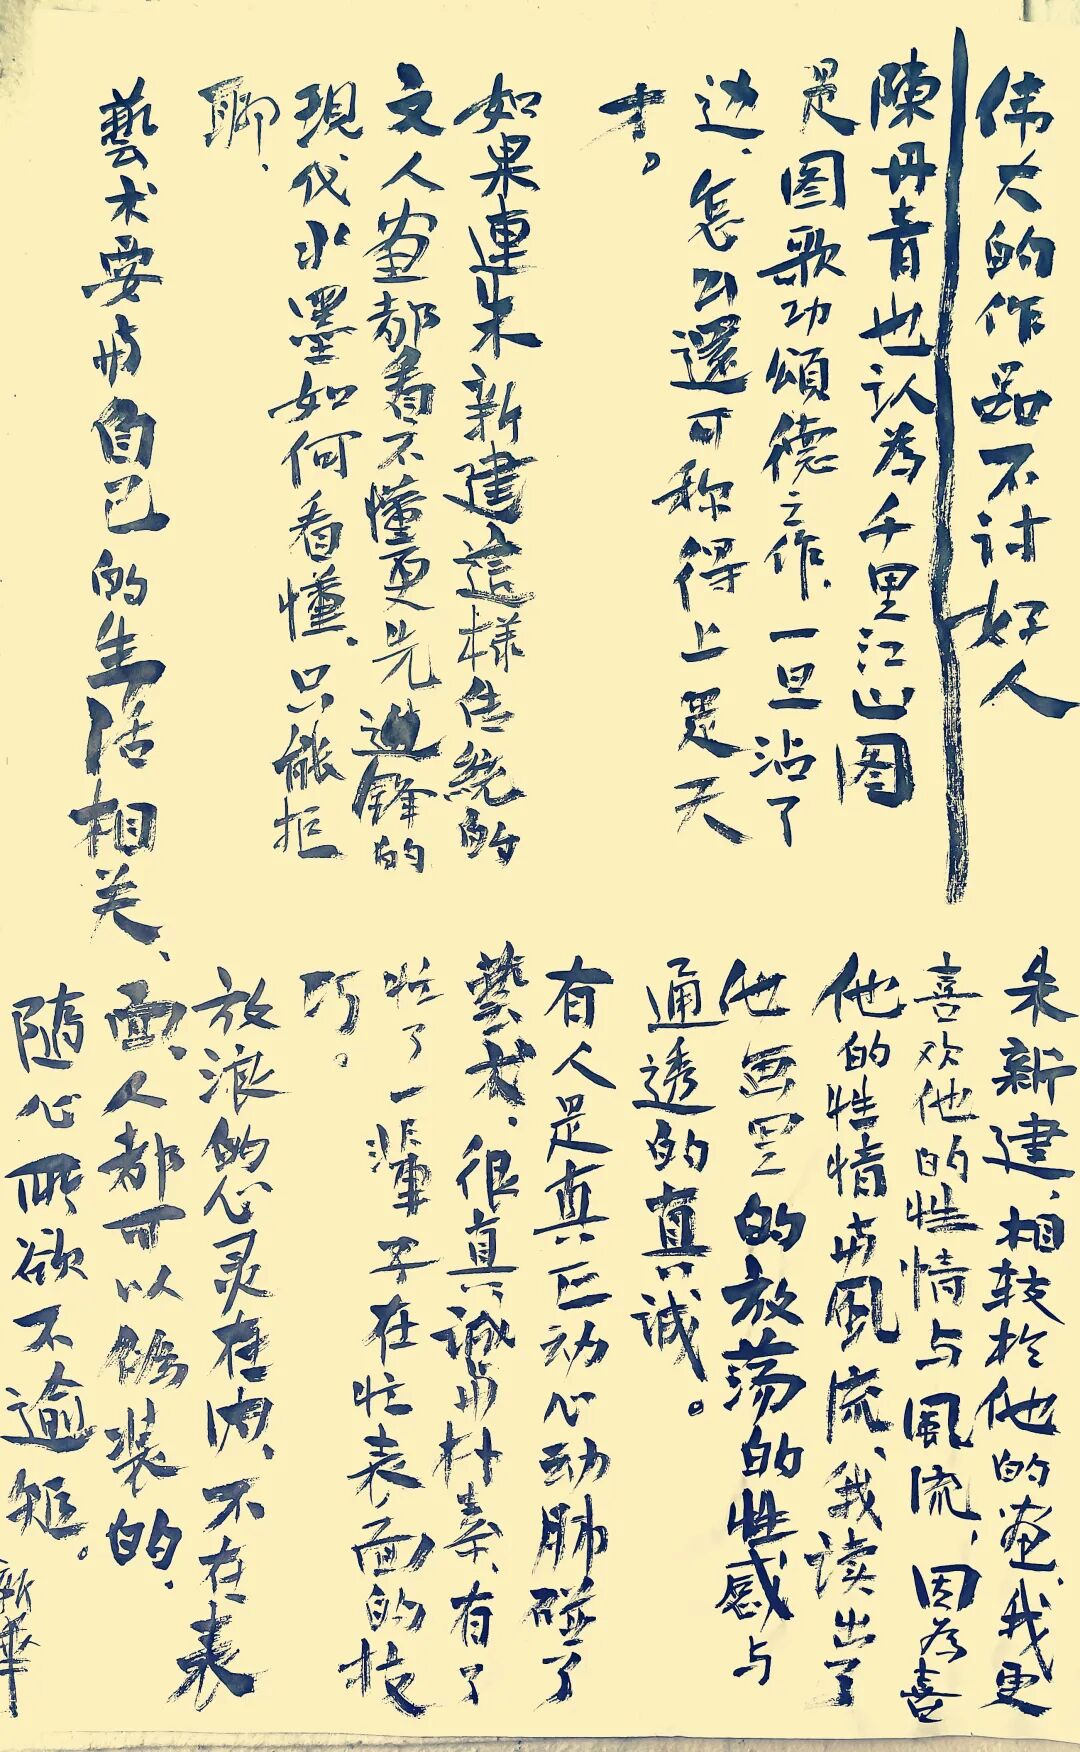 伟大的作品不讨好人
陳丹青也认为千里江山图
是图歌功頌德之作、一旦沾了
边、怎么還可称得上是天
才。
如果連朱新建這樣传統的
文人画都看不懂更先进鋒的
現代水墨如何看懂、只能拒
聊、
藝术要与自己的生活相关、
朱新建、相较於他的画、我更
喜欢他的性情与風流、因為喜
他的性情与風流、我读出了
他画里的放荡的性感与
通透的真诚。
有人是真正动心动肺碰了
藝术、很真诚与朴素、有了
忙了一輩子在忙表面的技
巧。
放浪的心灵在内、不在表
面、人都可以偽装的、
随心所欲不逾矩。
新華